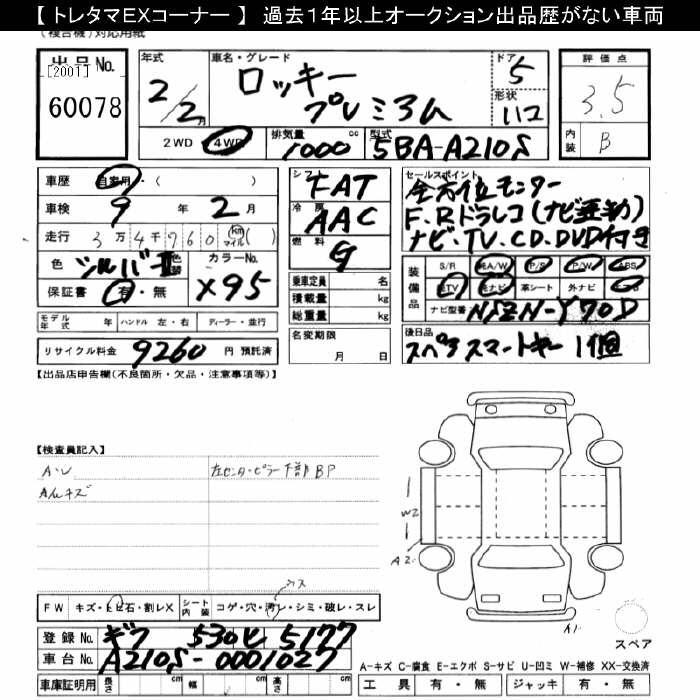 【 トレタマEXコーナー 】 過去１年以上オークション出品歴がない車両
(複合機)対応用紙
出品No.
[2001]
60078
年式
2/2月
車名・グレード
ロッキー
プレミアム
ドア
5
形状
ハコ
評価点
3.5
内装
B
2WD 4WD
排気量
1000 cc
型式
5BA-A210S
車歴 自家用・( )
車検 9年 2月
走行 3万4千960 km マイル( )
色 シルバーII 色替
カラーNo.
X95
保証書 有・無
シフト
FAT
冷房
AAC
燃料
G
乗車定員 名
積載量 kg
総重量 kg
セールスポイント
全方位モニター
F.Rドラレコ(ナビ連動)
ナビ・TV.CD.DVD付き
装備品
S/R 純A/W P/S P/W ABS
純TV 純ナビ 革シート 外ナビ エアB
ナビ型番 NSZN-Y70D
モデル年式 年 ハンドル 左・右 ディーラー・並行
リサイクル料金 9260 円 預託済
名変期限
月 日
後日品
スペアスマートキー 1個
【出品店申告欄(不良箇所・欠品・注意事項等)】
【検査員記入】
A・U
左センターピラー下部BP
AルキズW2
A2
A1
スペア
ウス
FW キズ・ヒビ石・割レX
シート内装 コゲ・穴・汚レ・シミ・破レ・スレ
登録No. ギフ 530 ヒ 5177
車台No. A210S-0001027
A-キズ C-腐食 E-エクボ S-サビ U-凹ミ W-補修 XX-交換済
車庫証明用 長さ cm 幅 cm 高さ cm
工具 有・無 ジャッキ 有・無